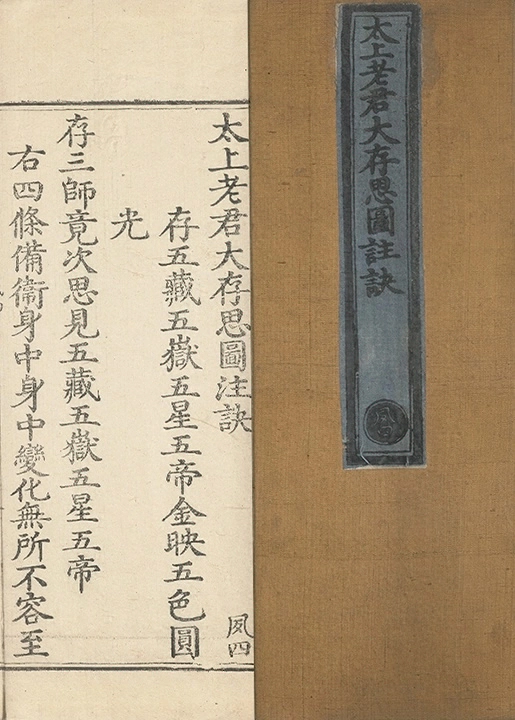 太上老君大存思圖註訣
太上老君大存思圖注訣
夙四
存五藏五嶽五星五帝金映五色圓
光
存三師竟次思見五藏五嶽五星五帝
右四條備衞身中身中變化無所不容至